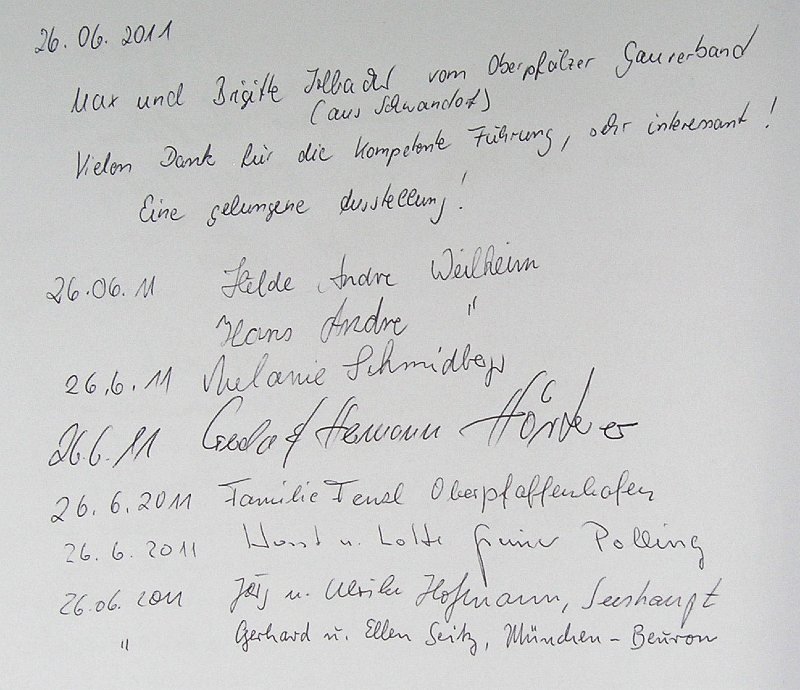 26.06.2011
Max und Brigitte vom Oberpfälzer Gauverband
(aus Schwandorf)
Vielen Dank für die kompetente Führung, sehr interessant!
Eine gelungene Ausstellung!
26.06.11 Hilde Andre Weilheim
Hans Andre "
26.6.11 Melanie Schmidberger
26.6.11 & Hermann
26.6.2011 Familie Oberpfaffenhofen
26.6.2011 Horst u. Lotte Polling
26.06.2011 Jörg u. Ulrike Hofmann, Seeshaupt
" Gerhard u. Ellen Seitz, München-Beuron